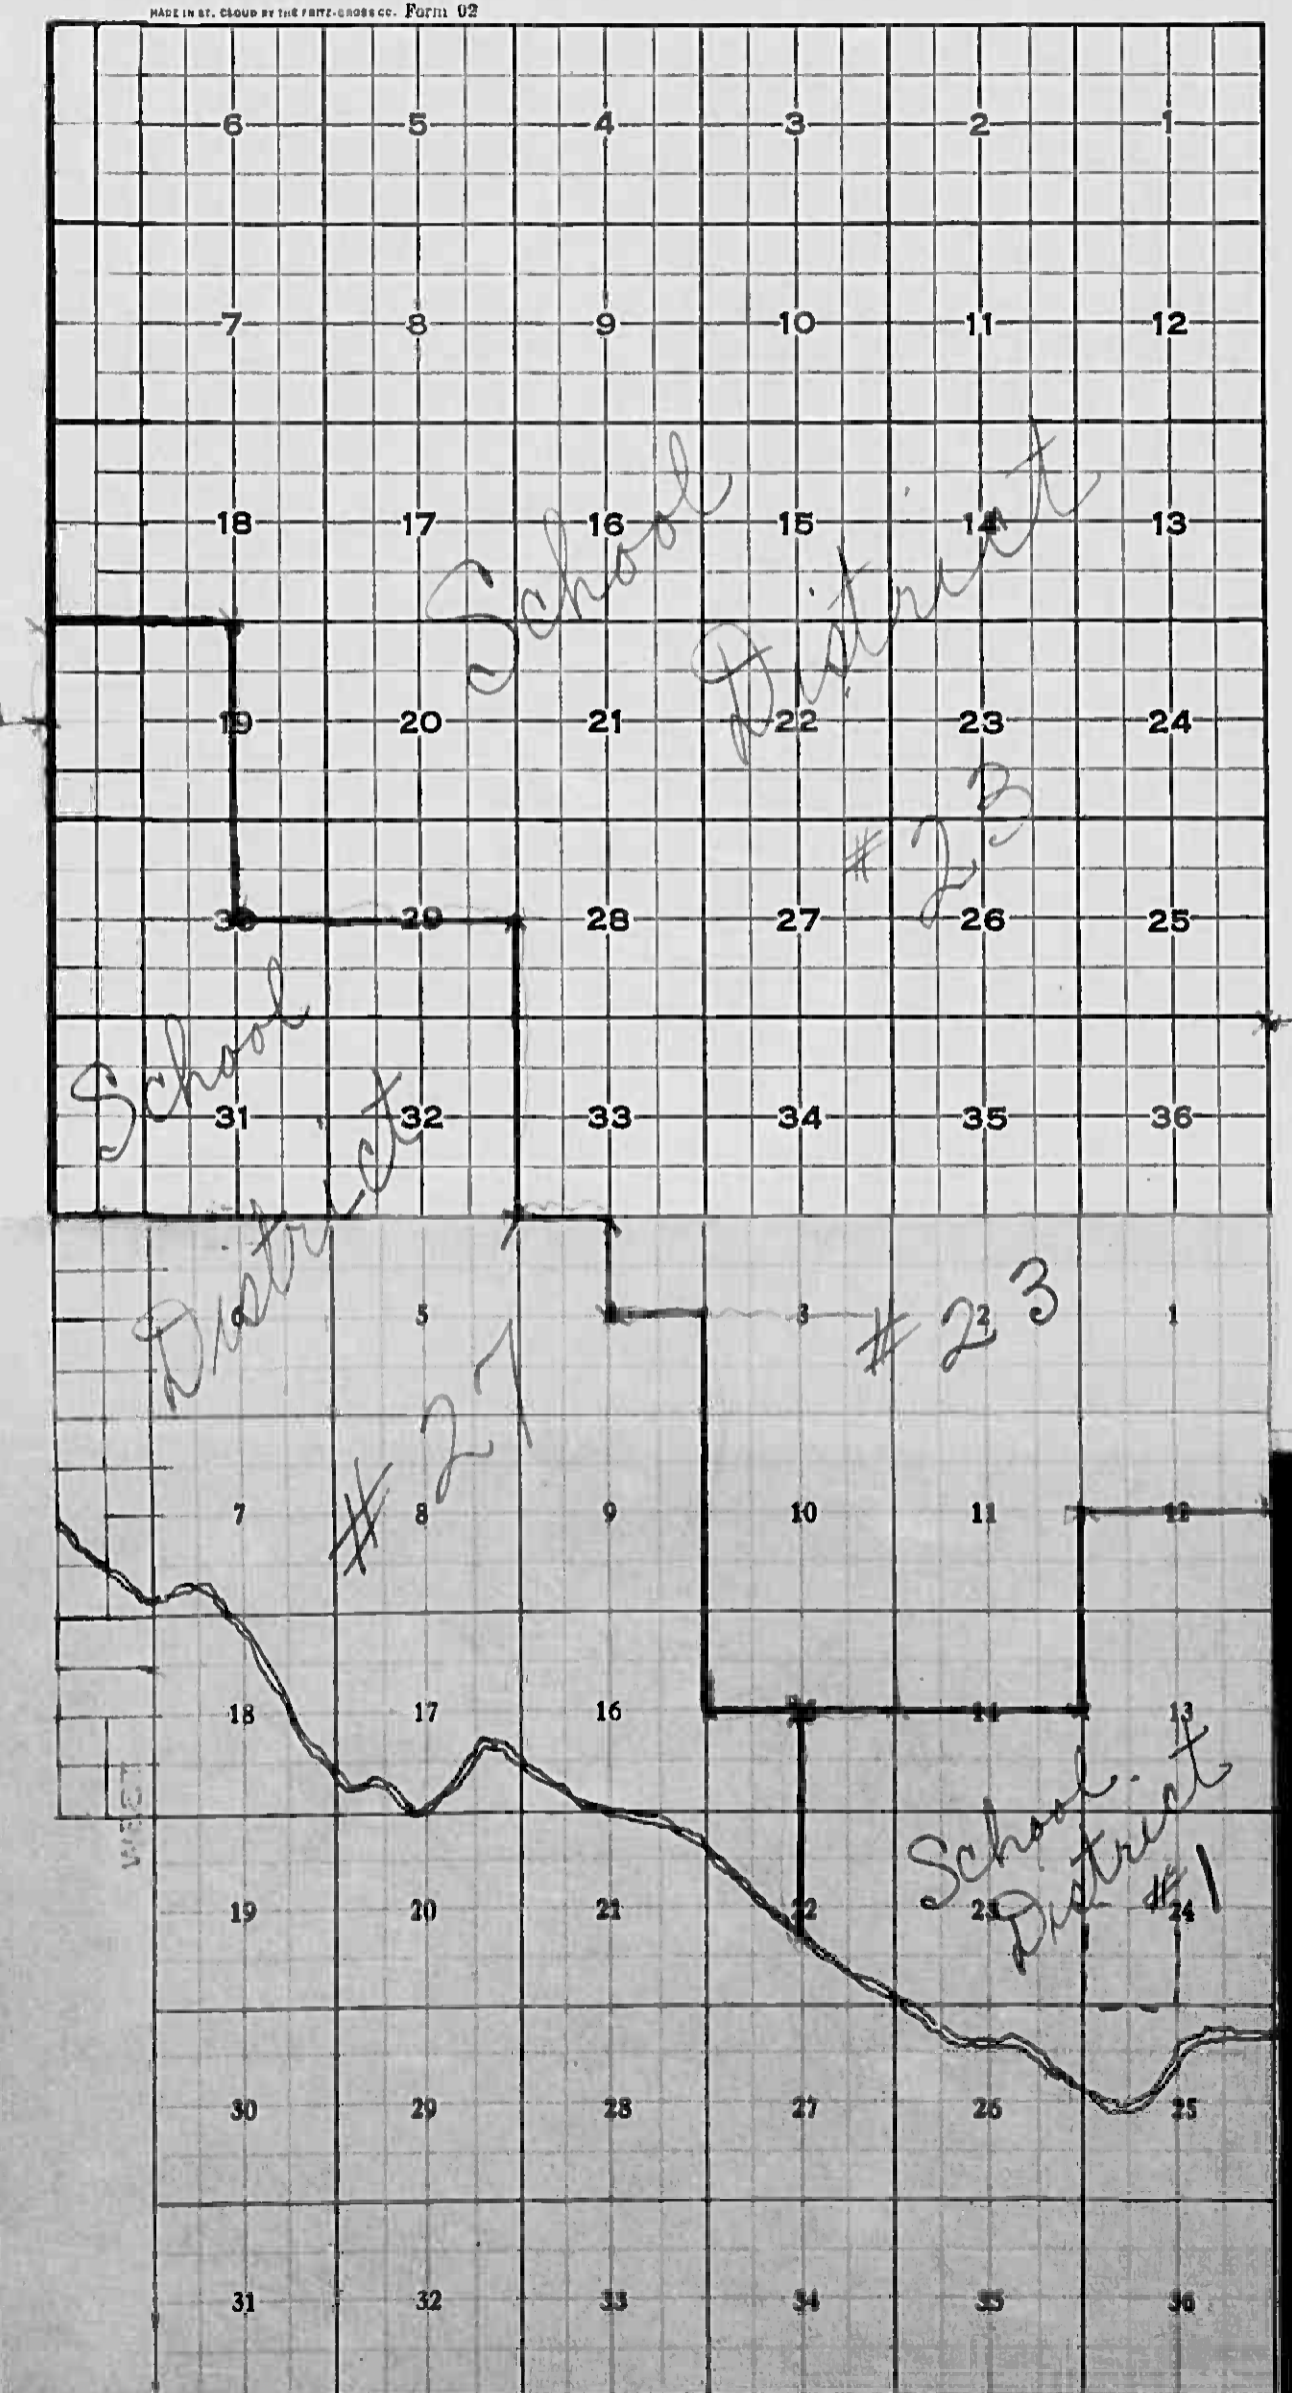 MADE IN ST. CLOUD BY THE FRITZ-CROSS CO. Form 02
6 5 4 3 2 1
7 8 9 10 11 12
18 17 16 15 14 13
School
District
19 20 21 22 23 24
# 23
30 29 28 27 26 25
School
31 32 33 34 35 36
District
6 5 3 2 1
# 23
# 27
7 8 9 10 11 12
18 17 16 15 14 13
School
District
# 1
19 20 21 22 23 24
30 29 28 27 26 25
31 32 33 34 35 36
WEST